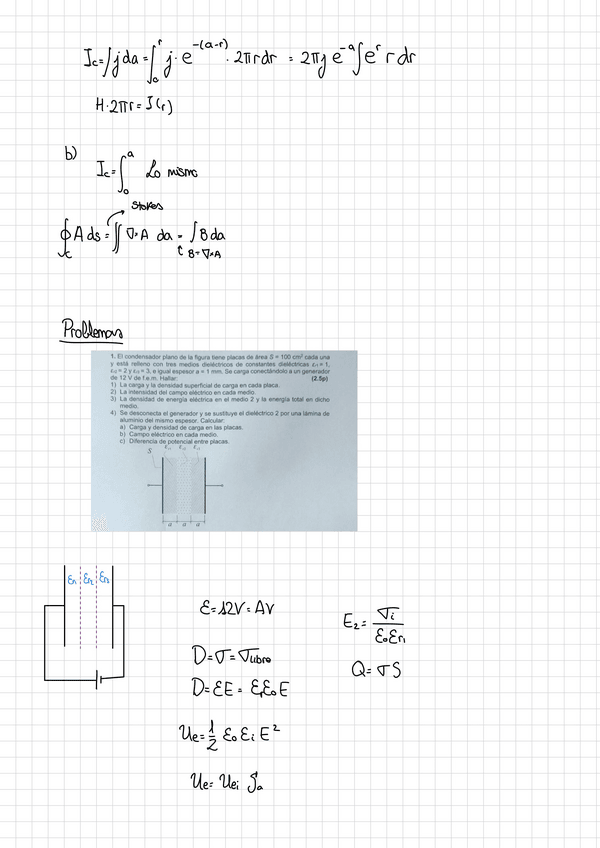 I_c = ∫ j da = ∫_0^r j · e^{-(a-r)} · 2πr dr = 2πj e^{-a} ∫ e^r r dr
H · 2πr = I(r)
b)
I_c = ∫_0^a Lo mismo
Stokes
∮_c A ds = ∬ ∇×A da = ∫ B da
B = ∇×A
Problemas
1. El condensador plano de la figura tiene placas de área S = 100 cm² cada una
y está relleno con tres medios dieléctricos de constantes dieléctricas εr1 = 1,
εr2 = 2 y εr3 = 3, e igual espesor a = 1 mm. Se carga conectándolo a un generador
de 12 V de f.e.m. Hallar: (2.5p)
1) La carga y la densidad superficial de carga en cada placa.
2) La intensidad del campo eléctrico en cada medio.
3) La densidad de energía eléctrica en el medio 2 y la energía total en dicho
medio.
4) Se desconecta el generador y se sustituye el dieléctrico 2 por una lámina de
aluminio del mismo espesor. Calcular:
a) Carga y densidad de carga en las placas.
b) Campo eléctrico en cada medio.
c) Diferencia de potencial entre placas.
S εr1 εr2 εr3
a a a
εr1 εr2 εr3
ε = 12V = ΔV
D = σ = σ_libre
D = εE = ε_r ε_0 E
u_e = 1/2 ε_0 ε_i E²
U_e = u_ei S a
E_2 = σ_i / ε_0 ε_r1
Q = σ S